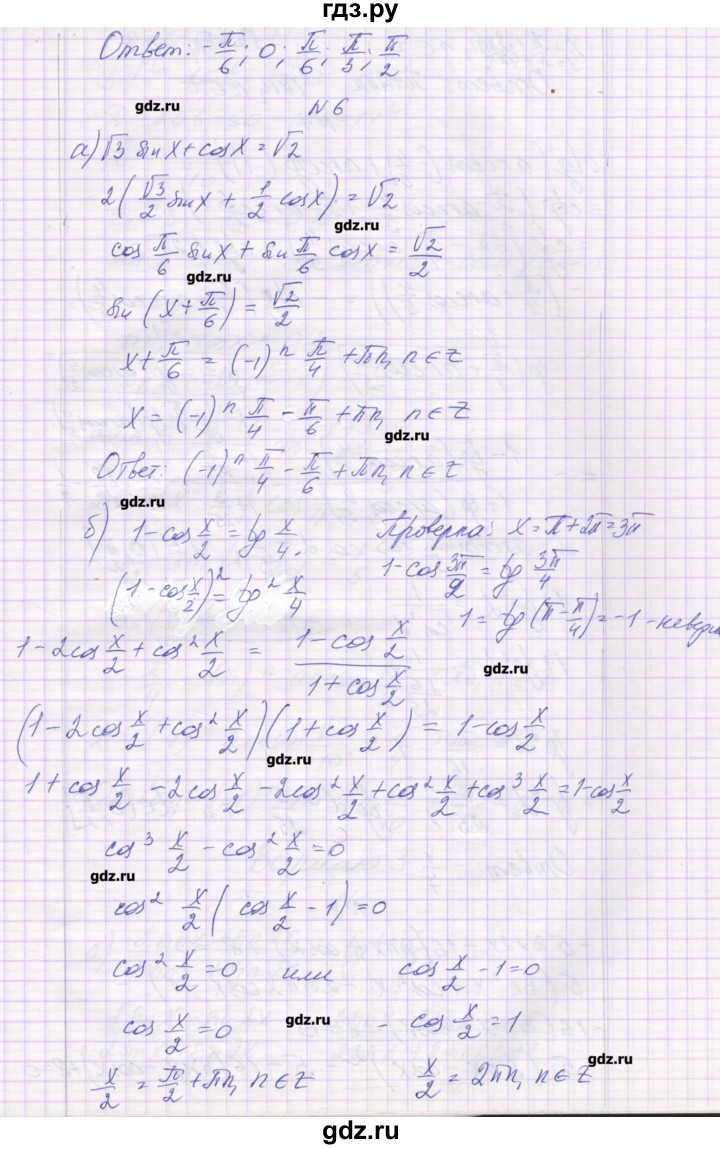 гдз.ру
Ответ: -π/6; 0; π/6; π/3; π/2
gdz.ru
N6
а) √3 sin x + cos x = √2
2(√3/2 sin x + 1/2 cos x) = √2
gdz.ru
cos π/6 sin x + sin π/6 cos x = √2/2
gdz.ru
sin (x + π/6) = √2/2
x + π/6 = (-1)^n π/4 + πn, n ∈ Z
x = (-1)^n π/4 - π/6 + πn, n ∈ Z
gdz.ru
Ответ: (-1)^n π/4 - π/6 + πn, n ∈ Z
gdz.ru
б) 1 - cos x/2 = tg x/4.
Проверка: x = π + 2π = 3π
1 - cos 3π/2 = tg 3π/4
(1 - cos x/2)² = tg² x/4
1 = tg (π - π/4) = -1 - неверно
1 - 2cos x/2 + cos² x/2 = (1 - cos x/2)/(1 + cos x/2)
gdz.ru
(1 - 2cos x/2 + cos² x/2)(1 + cos x/2) = 1 - cos x/2
gdz.ru
1 + cos x/2 - 2cos x/2 - 2cos² x/2 + cos² x/2 + cos³ x/2 = 1 - cos x/2
cos³ x/2 - cos² x/2 = 0
gdz.ru
cos² x/2 (cos x/2 - 1) = 0
cos² x/2 = 0 или cos x/2 - 1 = 0
cos x/2 = 0 gdz.ru - cos x/2 = 1
gdz.ru
x/2 = π/2 + πn, n ∈ Z x/2 = 2πn, n ∈ Z
gdz.ru